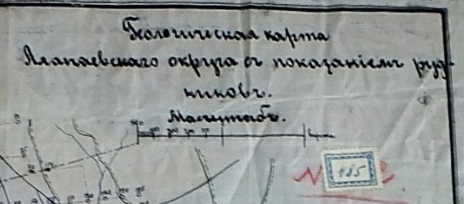 Геологическая карта
Алапаевскаго округа съ показанiемъ руд-
никовъ.
Масштабъ.
185